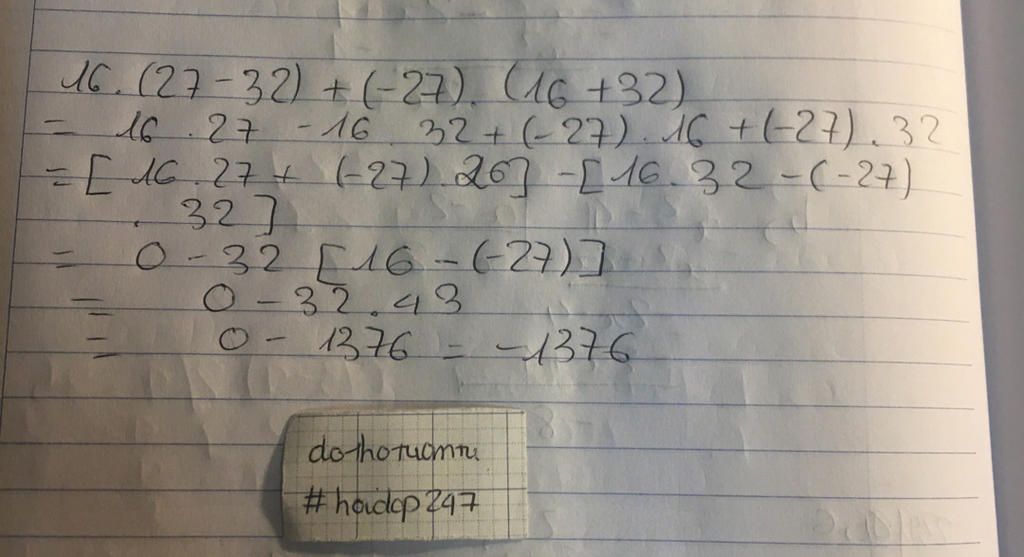 16.(27-32)+(-27).(16+32)
= 16.27 -16 32+(-27).16+(-27).32
=[16.27+ (-27).26] -[16.32-(-27)
. 32]
= 0-32 [16-(-27)]
= 0-32.43
= 0- 1376 = -1376
#hoidap247